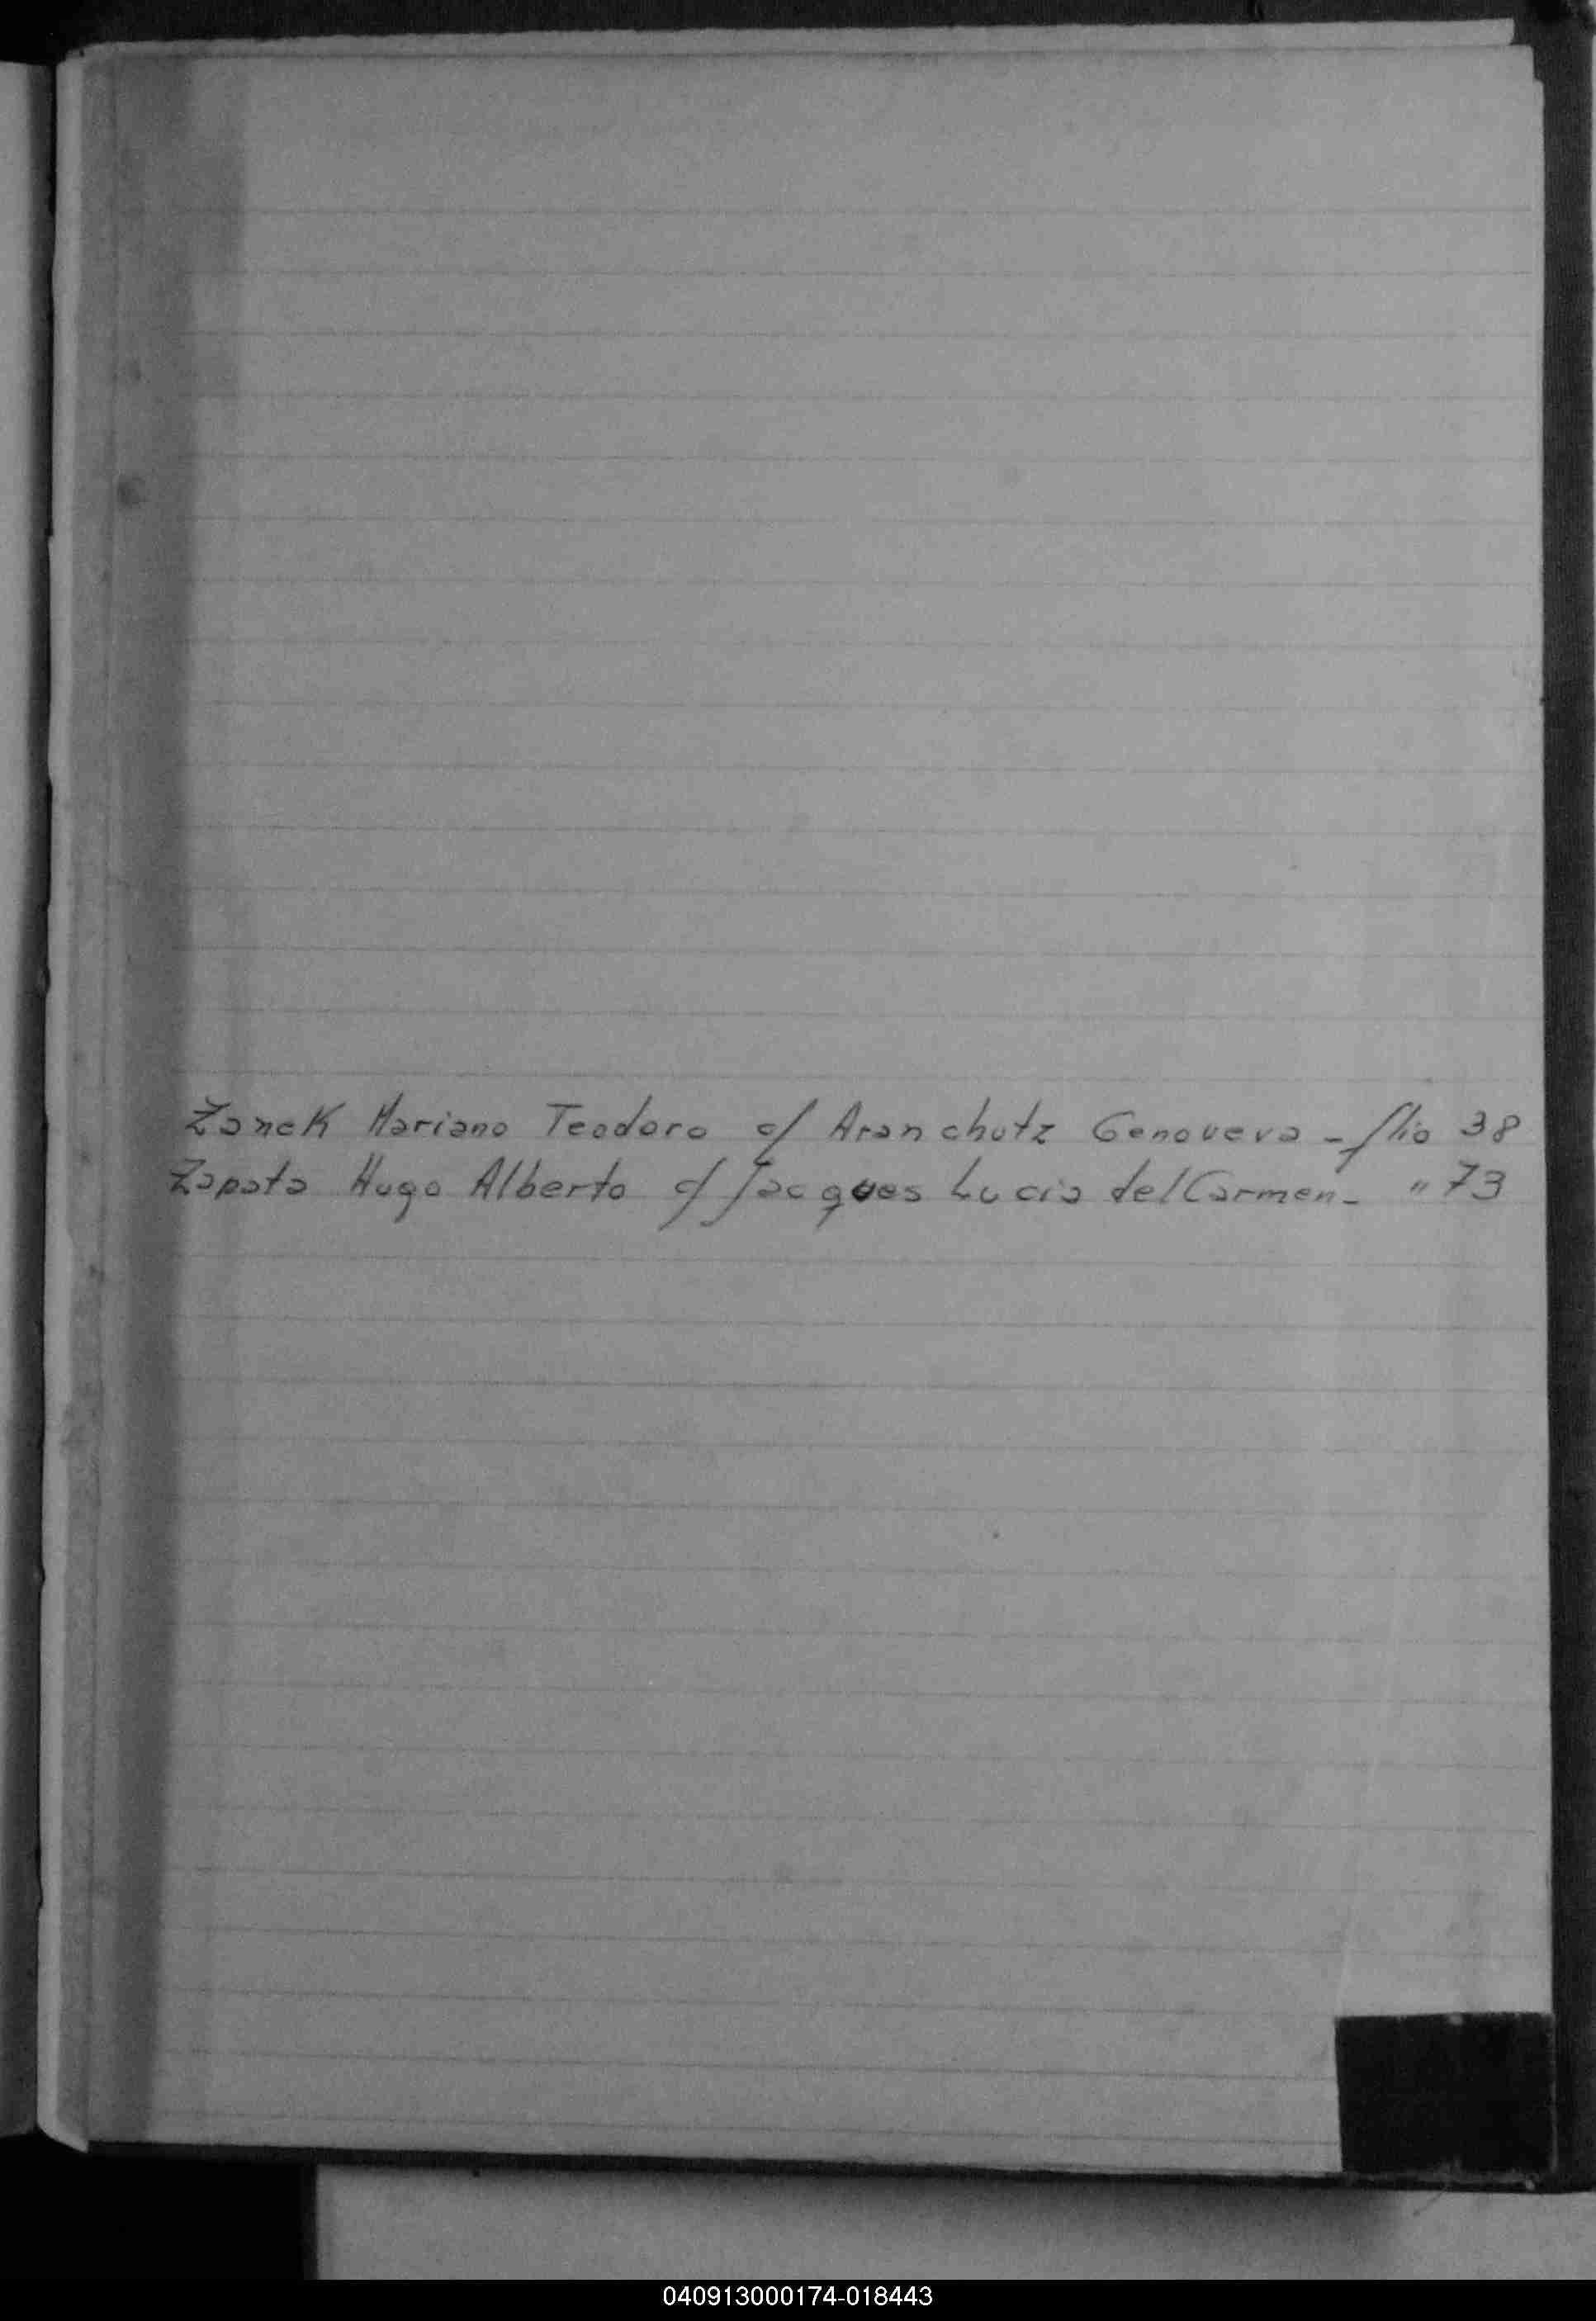 Zanek Mariano Teodoro c/ Aranchutz Genoveva - flio 38
Zapata Hugo Alberto c/ Jacques Lucia del Carmen - " 73
040913000174-018443